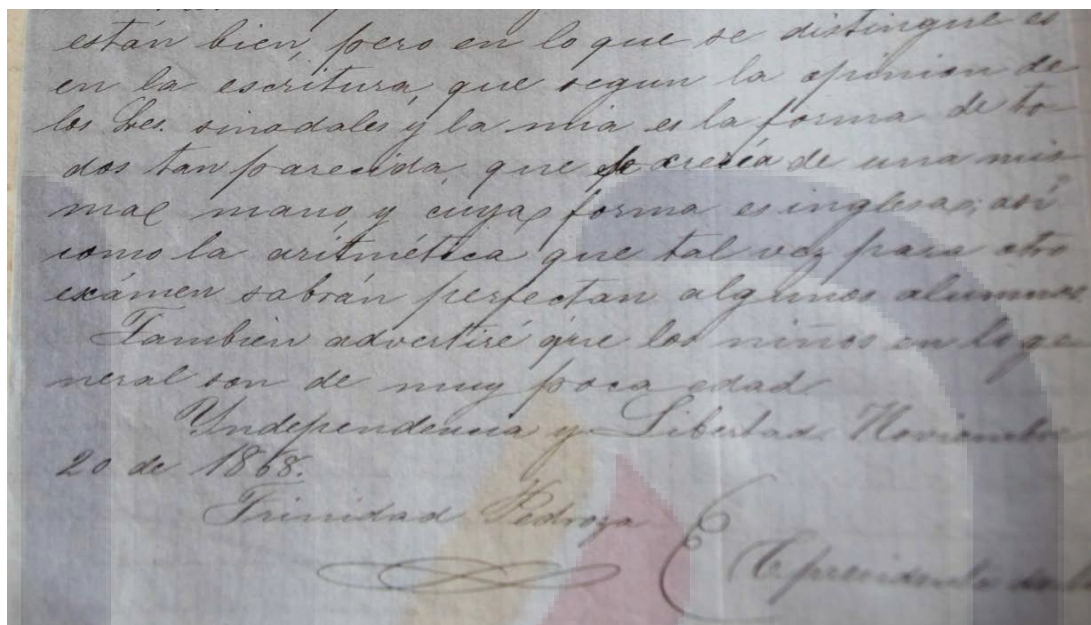 están bien, pero en lo que se distingue es
en la escritura, que segun la opinion de
los Sres. sinodales y la mia es la forma de to
dos tan parecida, que se creería de una mis
ma mano, y cuya forma es inglesa; así
como la aritmética que tal vez para otro
exámen sabrán perfectan algunos alumnos
Tambien advertiré que los niños en lo ge
neral son de muy poca edad.
Yndependencia y Libertad. Noviembre
20 de 1868.
Trinidad Pedroza
El presidente